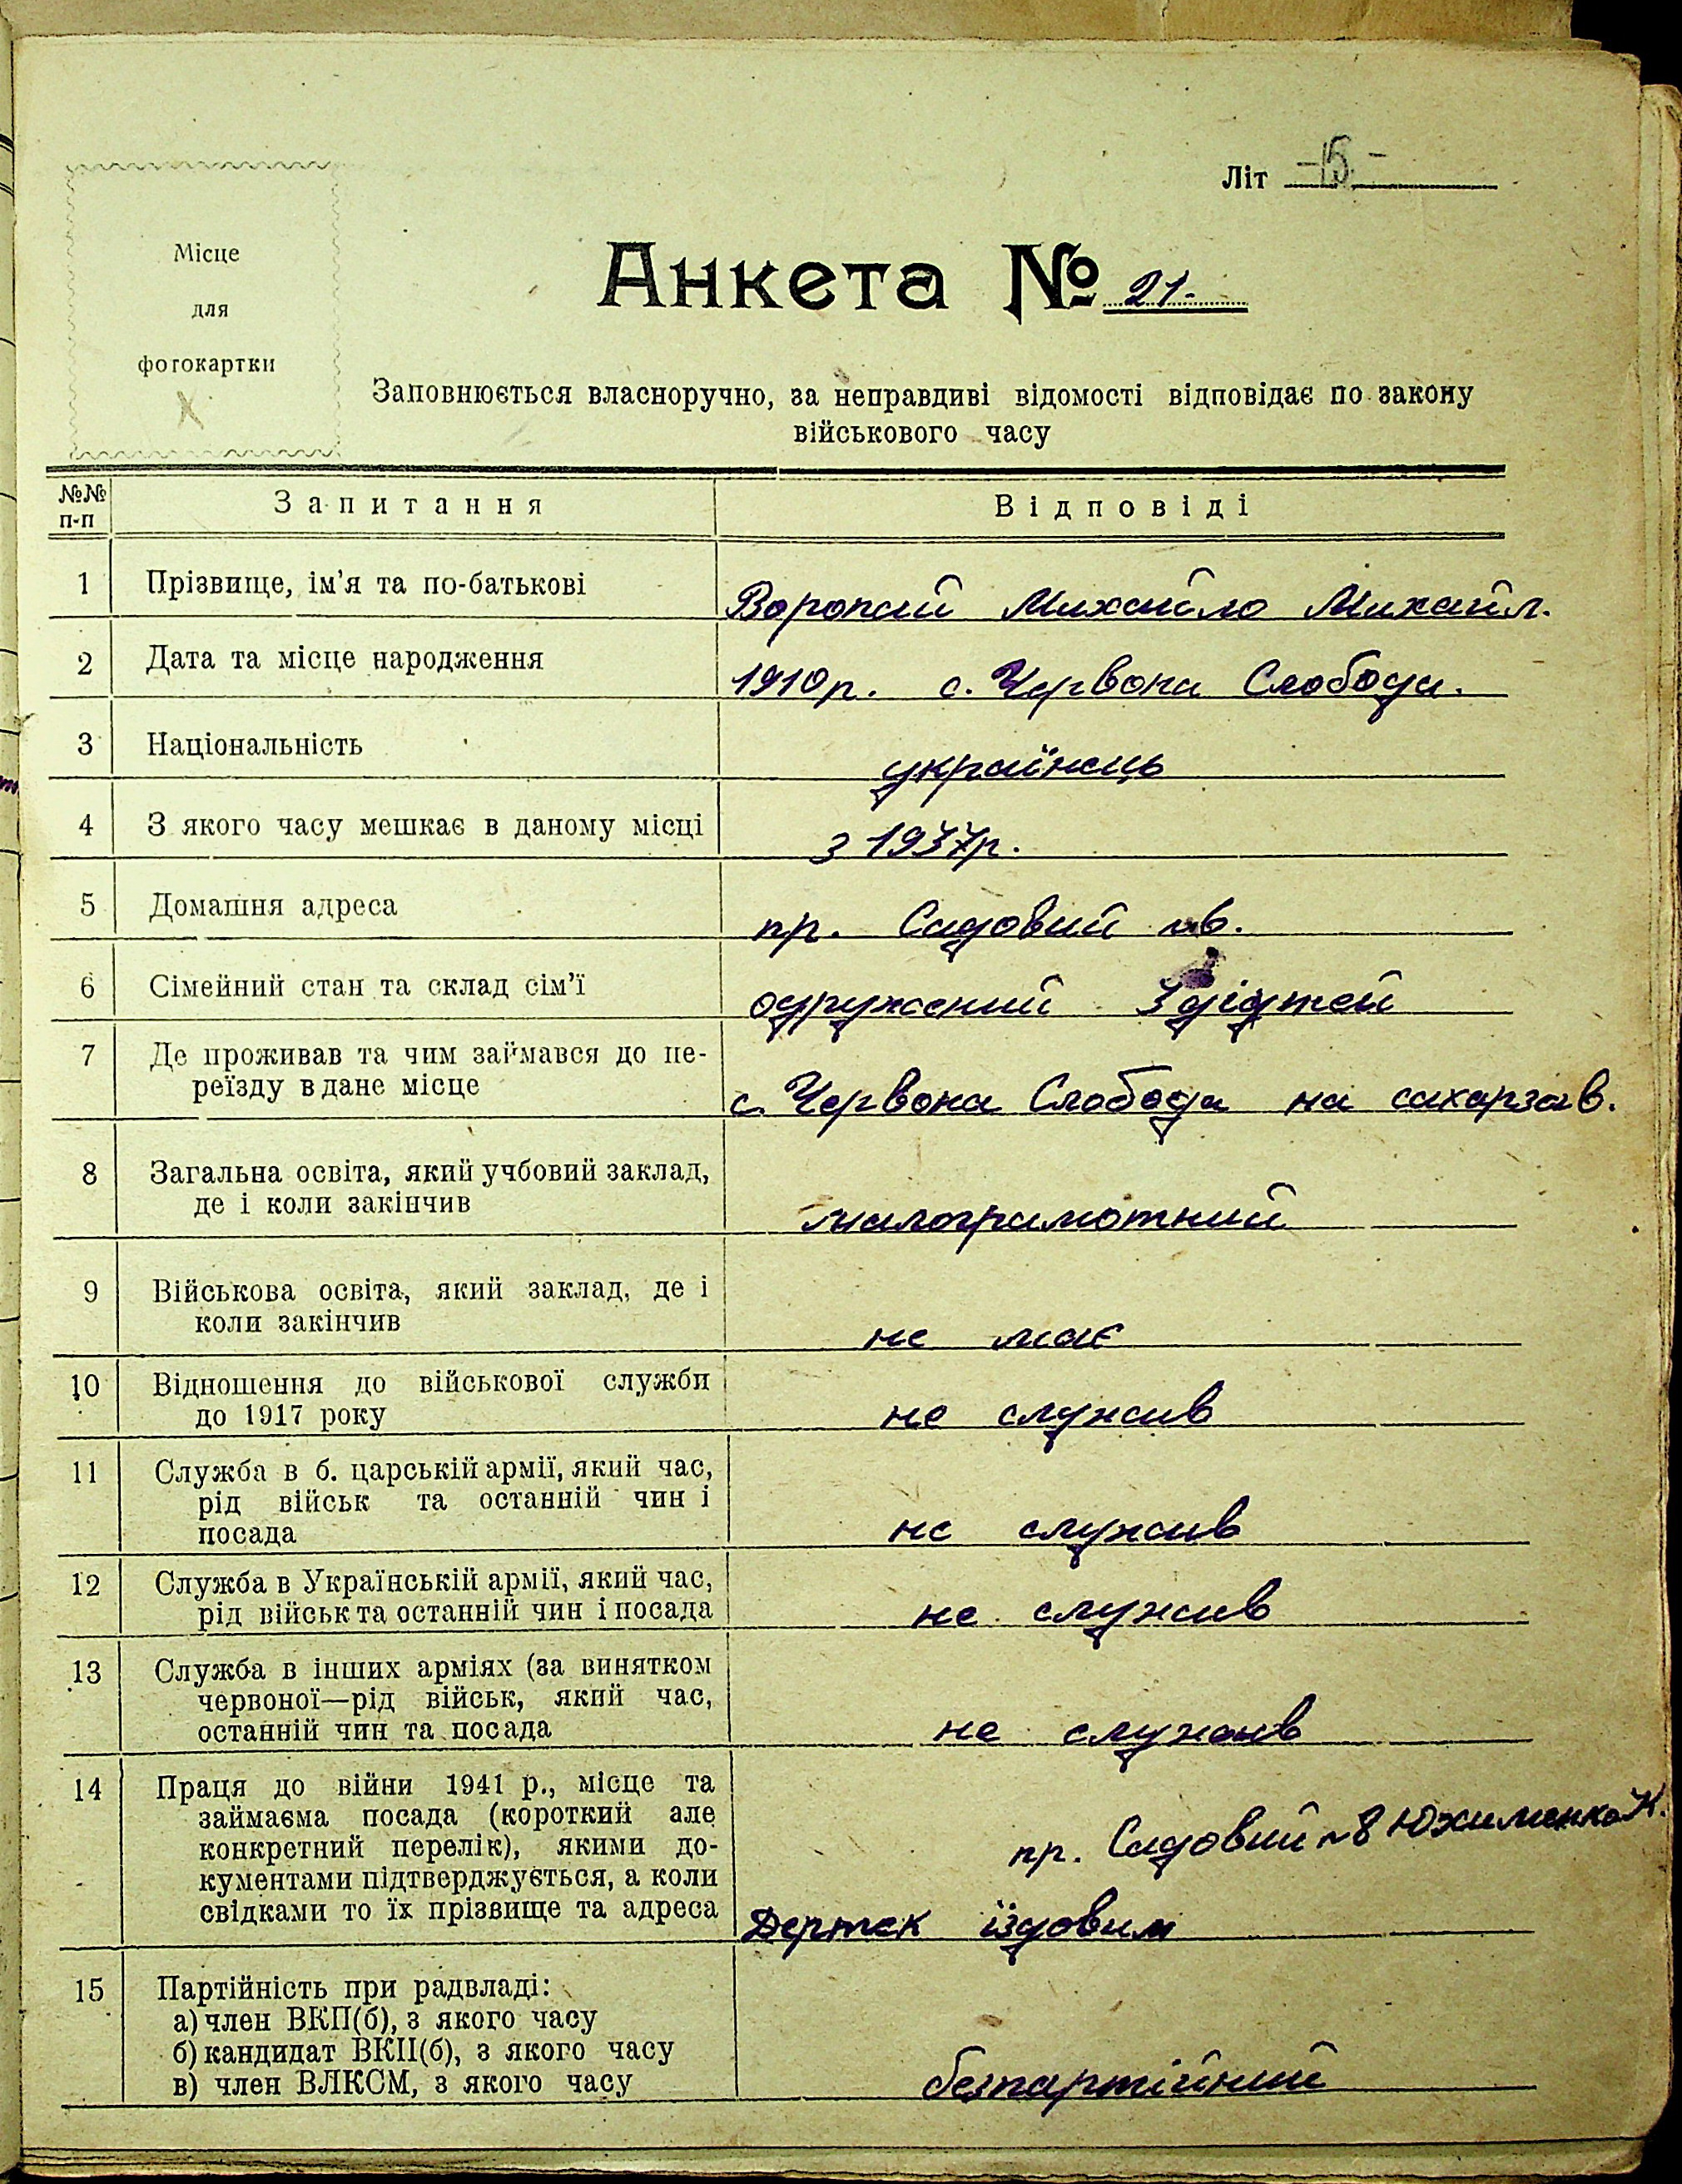 Літ -15-
Місце
для
фотокартки
Анкета № 21-
Заповнюється власноручно, за неправдиві відомості відповідає по закону
військового часу
№№
п-п
Запитання
Відповіді
1
Прізвище, ім'я та по-батькові
Воропай Михайло Михайл.
2
Дата та місце народження
1910р. с. Червона Слобода.
3
Національність
українець
4
З якого часу мешкає в даному місці
з 1937р.
5
Домашня адреса
пр. Садовий
6
Сімейний стан та склад сім'ї
одружений
7
Де проживав та чим займався до пе-
реїзду в дане місце
с. Червона Слобода на сахарзав.
8
Загальна освіта, який учбовий заклад,
де і коли закінчив
малограмотний
9
Військова освіта, який заклад, де і
коли закінчив
не має
10
Відношення до військової служби
до 1917 року
не служив
11
Служба в б. царській армії, який час,
рід військ та останній чин і
посада
не служив
12
Служба в Українській армії, який час,
рід військ та останній чин і посада
не служив
13
Служба в інших арміях (за винятком
червоної—рід військ, який час,
останній чин та посада
не служив
14
Праця до війни 1941 р., місце та
займаєма посада (короткий але
конкретний перелік), якими до-
кументами підтверджується, а коли
свідками то їх прізвище та адреса
пр. Садовий №8 Юхименко К.
їздовим
15
Партійність при радвладі:
а) член ВКП(б), з якого часу
б) кандидат ВКП(б), з якого часу
в) член ВЛКСМ, з якого часу
безпартійний